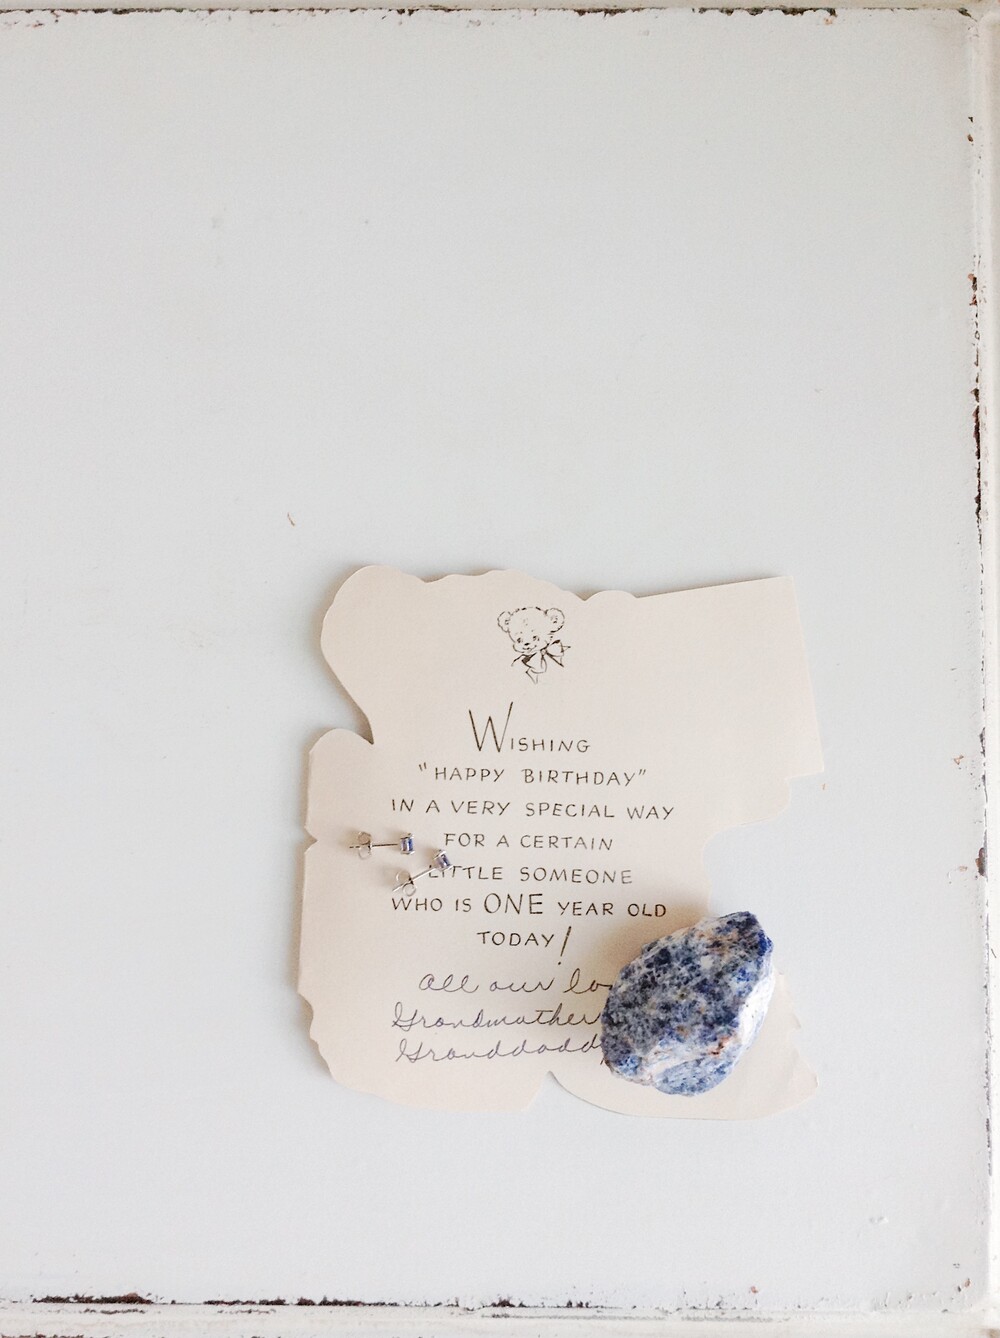 WISHING
"HAPPY BIRTHDAY"
IN A VERY SPECIAL WAY
FOR A CERTAIN
LITTLE SOMEONE
WHO IS ONE YEAR OLD
TODAY!
All our lo
Grandmother
Grandda